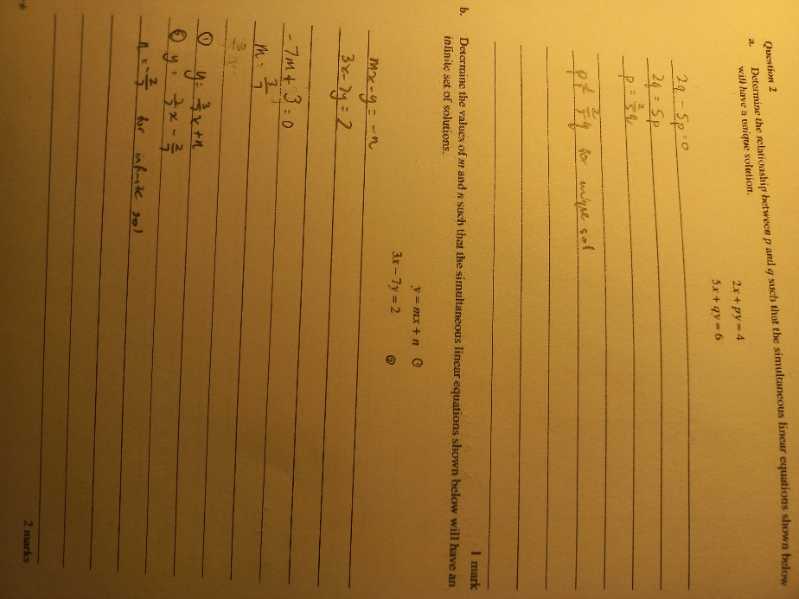 Question 2
a. Determine the relationship between p and q such that the simultaneous linear equations shown below
will have a unique solution.
2x + py = 4
5x + qy = 6
2q - 5p = 0
2q = 5p
p = 2/5 q
p ≠ 2/5 q for unique sol
1 mark
b. Determine the values of m and n such that the simultaneous linear equations shown below will have an
infinite set of solutions.
y = mx + n ①
3x - 7y = 2 ②
mx - y = -n
3x - 7y = 2
-7m + 3 = 0
m = 3/7
① y = 3/7 x + n
② y = 3/7 x - 2/7
n = -2/7 for infinite sol
2 marks